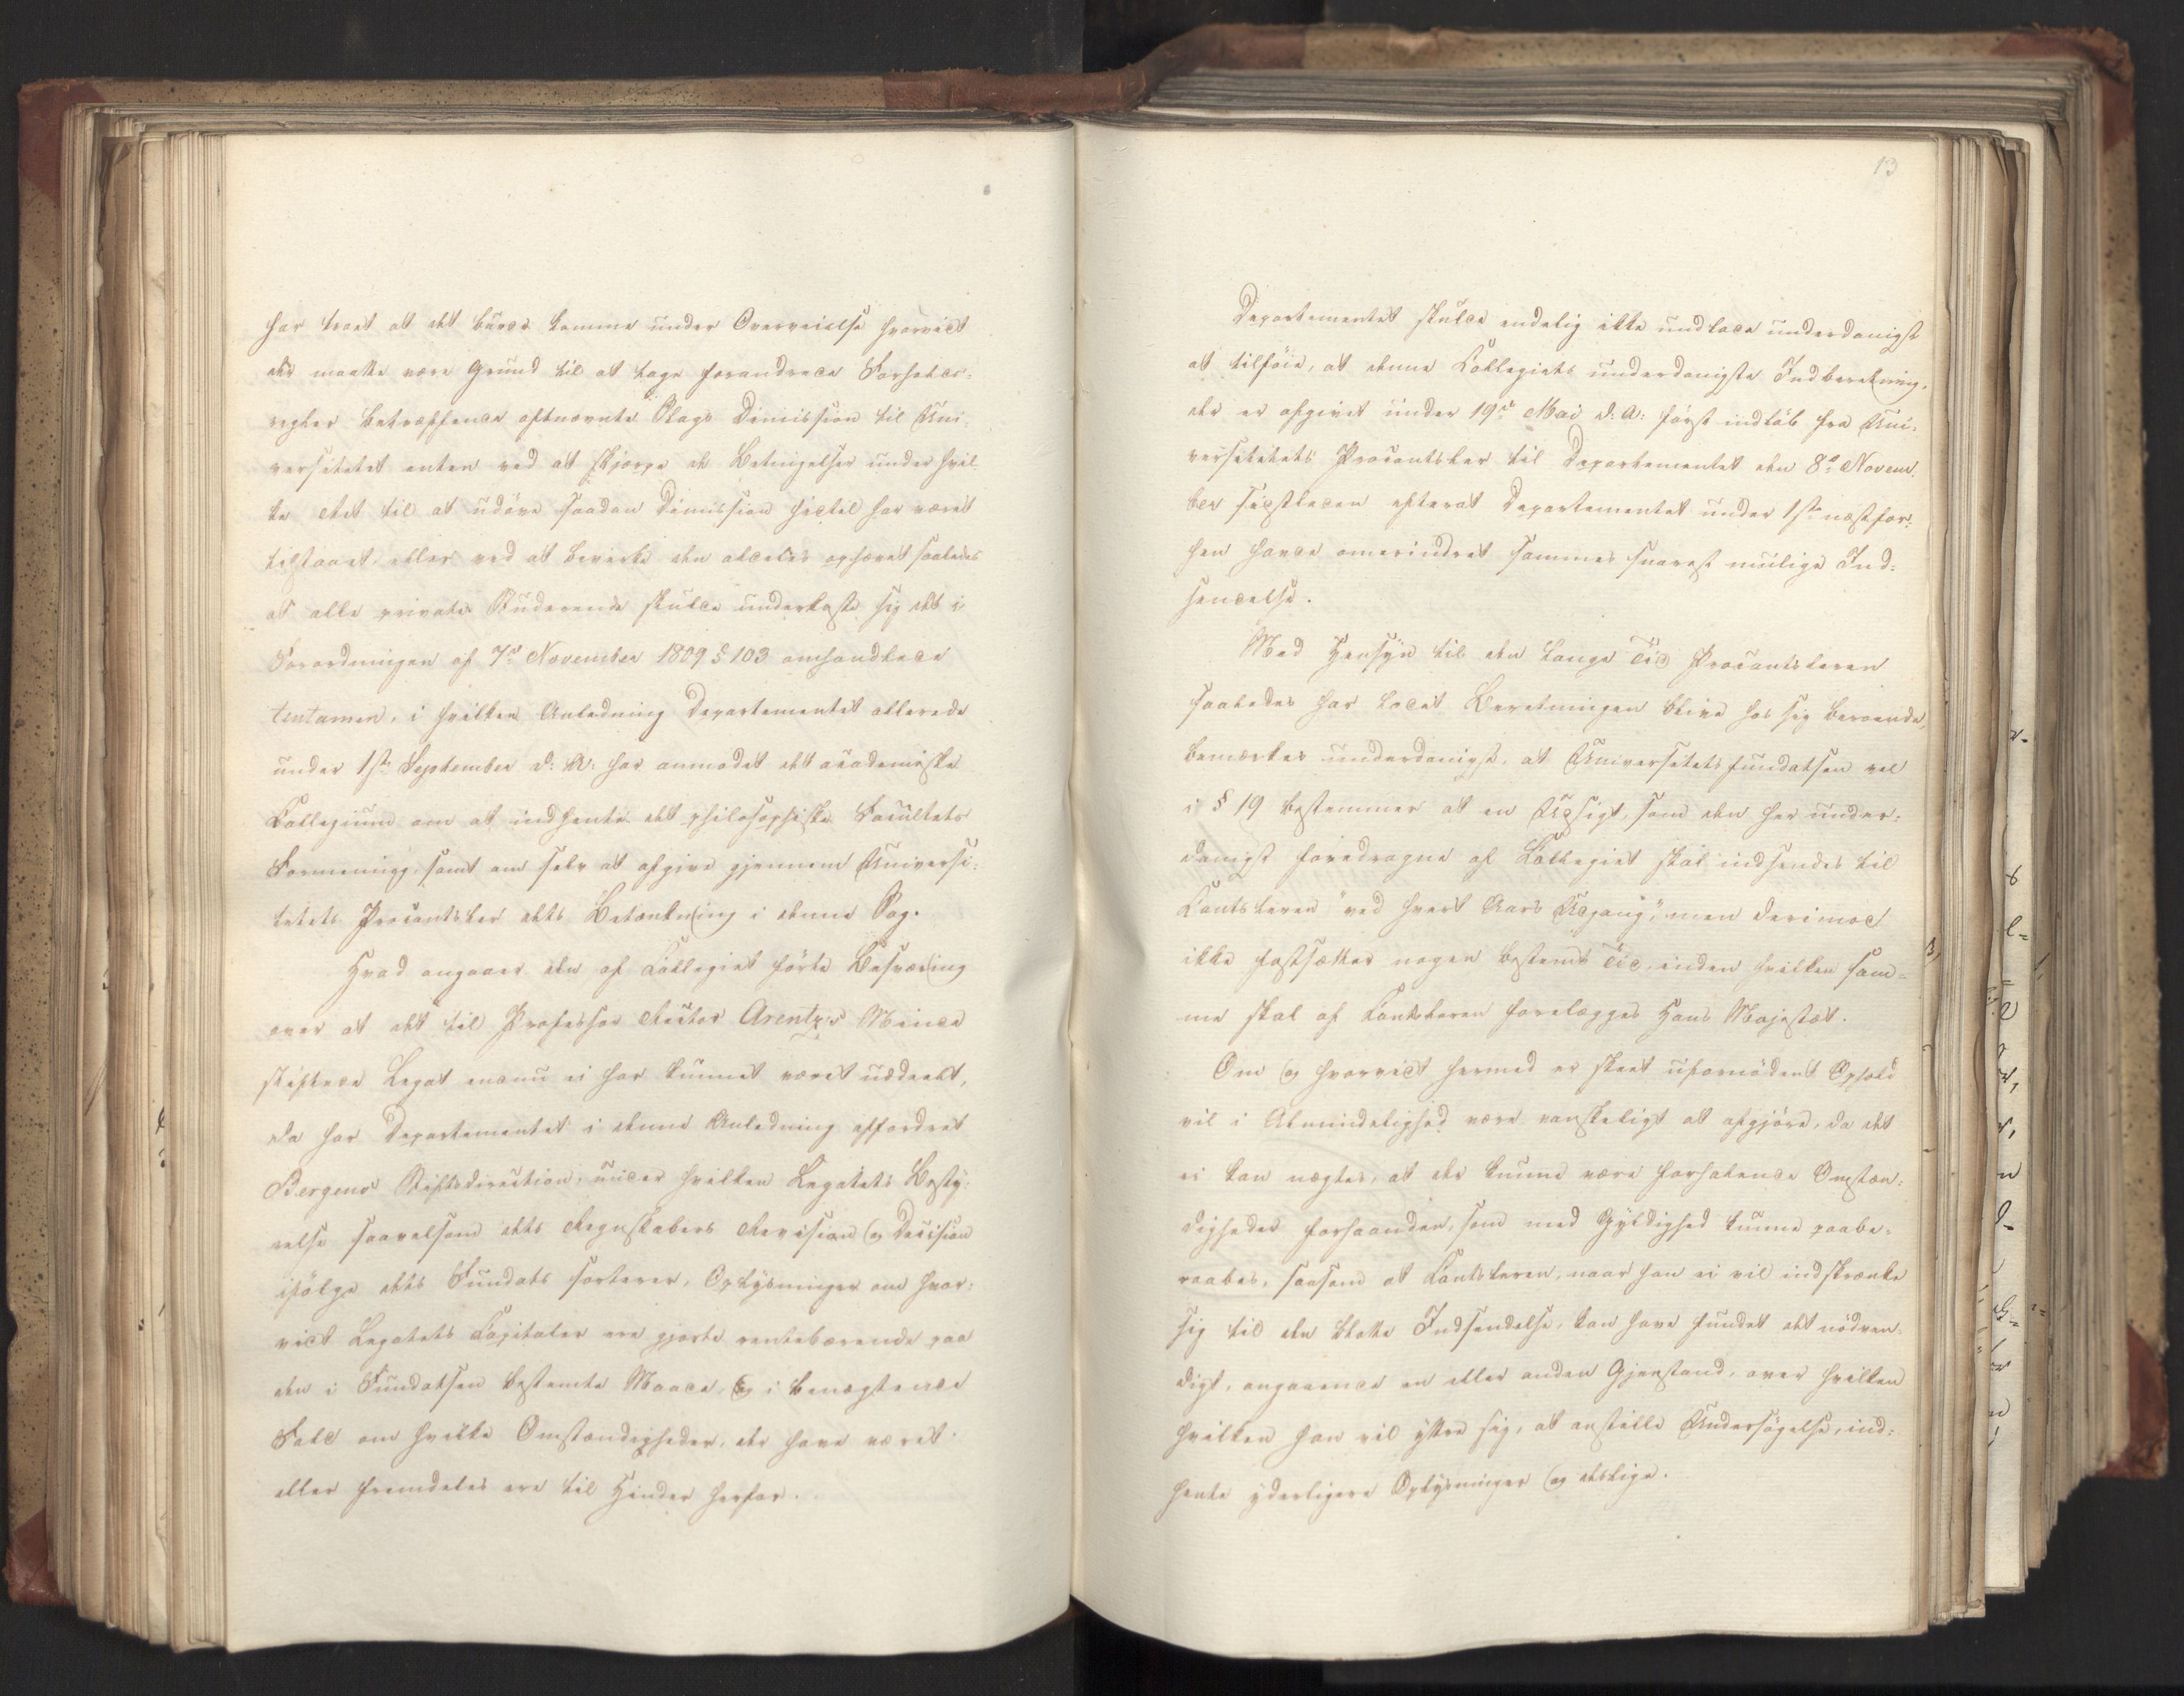 har troet at det burde komme under Overveielse hvorvidt
der maatte være Grund til at tage forandrede Forholds-
regler betræffende oftnævnte Slags Dimission til Uni-
versitetet enten ved at skjærpe de Betingelser under hvil-
ke Ret til at udöve saadan Dimission hidtil har været
tilstaaet, eller ved at bevirke den aldeles ophævet saaledes
at alle private Studerende skulde underkaste sig det i
Forordningen af 7de November 1809 § 103 omhandlede
tentamen, i hvilken Anledning Departementet allerede
under 1ste September d: A: har anmodet det academiske
Collegium om at indhente det philosophiske Facultets
Formening, samt om selv at afgive gjennem Universi-
tetets Procantsler dets Betænkning i denne Sag.
Hvad angaaer den af Collegiet förte Besværing
over at det til Professor Rector Arentz's Minde
stiftede Legat endnu ei har kunnet været uddeelt,
da har Departementet i denne Anledning affordret
Bergens Stiftsdirection, under hvilken Legatets Besty-
relse saavelsom dets Regnskabers Revision og Decision
ifölge dets Fundats sorterer, Oplysninger om hvor-
vidt Legatets Capitaler ere gjorte rentebærende paa
den i Fundatsen bestemte Maade, og i benægtende
Fald om hvilke Omstændigheder, der have været
eller fremdeles ere til Hinder herfor.
13
Departementet skulde endelig ikke undlade underdanigst
at tilföie, at denne Collegiets underdanigste Indberetning,
der er afgivet under 19de Mai d: A: först indlöb fra Uni-
versitetets Procantsler til Departementet den 8de Novem-
ber sidstleden efterat Departementet under 1ste næstfor-
hen havde omerindret sammes snarest mulige Ind-
sendelse.
Med Hensyn til den lange Tid Procantsleren
saaledes har ladet Beretningen blive hos sig beroende,
bemærkes underdanigst, at Universitetsfundatsen vel
i § 19 bestemmer at en Udsigt, som den her under-
danigst foredragne af Collegiet skal indsendes til
Cantsleren "ved hvert Aars Udgang", men derimod
ikke fastsætter nogen bestemt Tid, inden hvilken sam-
me skal af Cantsleren forelægges Hans Majestæt.
Om og hvorvidt hermed er skeet ufornödent Ophold
vil i Almindelighed være vanskeligt at afgjöre, da det
ei kan nægtes, at der kunne være forholdende Omstæn-
digheder forhaanden, som med Gyldighed kunne paabe-
raabes, saasom at Cantsleren, naar han ei vil indskrænke
sig til den blotte Indsendelse, kan have fundet det nödven-
digt, angaaende en eller anden Gjenstand, over hvilken
hvilken han vil yttre sig, at anstille Undersögelse, ind-
hente yderligere Oplysninger og deslige.